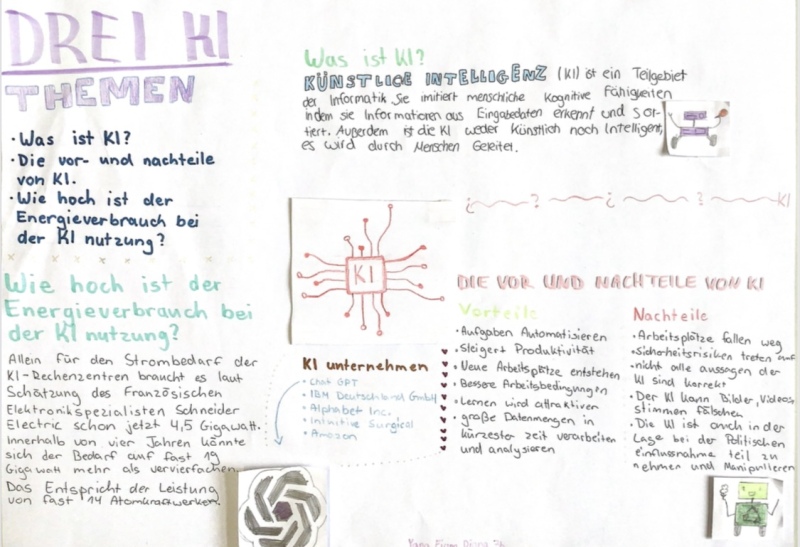 DREI KI
THEMEN
• Was ist KI?
• Die vor- und nachteile
von KI.
• Wie hoch ist der
Energieverbrauch bei
der KI nutzung?
Wie hoch ist der
Energieverbrauch bei
der KI nutzung?
Allein für den Strombedarf der
KI-Rechenzentren braucht es laut
Schätzung des Französischen
Elektronikspezialisten Schneider
Electric schon jetzt 4,5 Gigawatt.
Innerhalb von vier Jahren könnte
sich der Bedarf auf fast 19
Gigawatt mehr als vervierfachen.
Das Entspricht der Leistung
von fast 14 Atomkraftwerken.
Was ist KI?
KÜNSTLICE INTELLIGENZ (KI) ist ein Teilgebiet
der Informatik Sie imitiert menschliche Kognitive Fähigkeiten
indem sie Informationen aus Eingabedaten erkennt und sor-
tiert. Außerdem ist die KI weder Künstlich noch Intelligent,
es wird durch Menschen Geleitet.
¿ ? ¿ ? KI
KI
KI unternehmen
• Chat GPT
• IBM Deutschland GmbH
• Alphabet Inc.
• Intuitive Surgical
• Amazon
DIE VOR UND NACHTEILE VON KI
Vorteile
• Aufgaben Automatisieren
• Steigert Produktivität
• Neue Arbeitsplätze entstehen
• Bessere Arbeitsbedingungen
• Lernen wird attraktiver
• große Datenmengen in
kürzester zeit verarbeiten
und analysieren
Nachteile
• Arbeitsplätze fallen weg
• Sicherheitsrisiken treten auf
• nicht alle aussagen der
KI sind korrekt
• Der KI kann Bilder, Videos,
stimmen fälschen
• Die KI ist auch in der
Lage bei der Politischen
einflussnahme teil zu
nehmen und Manipulieren